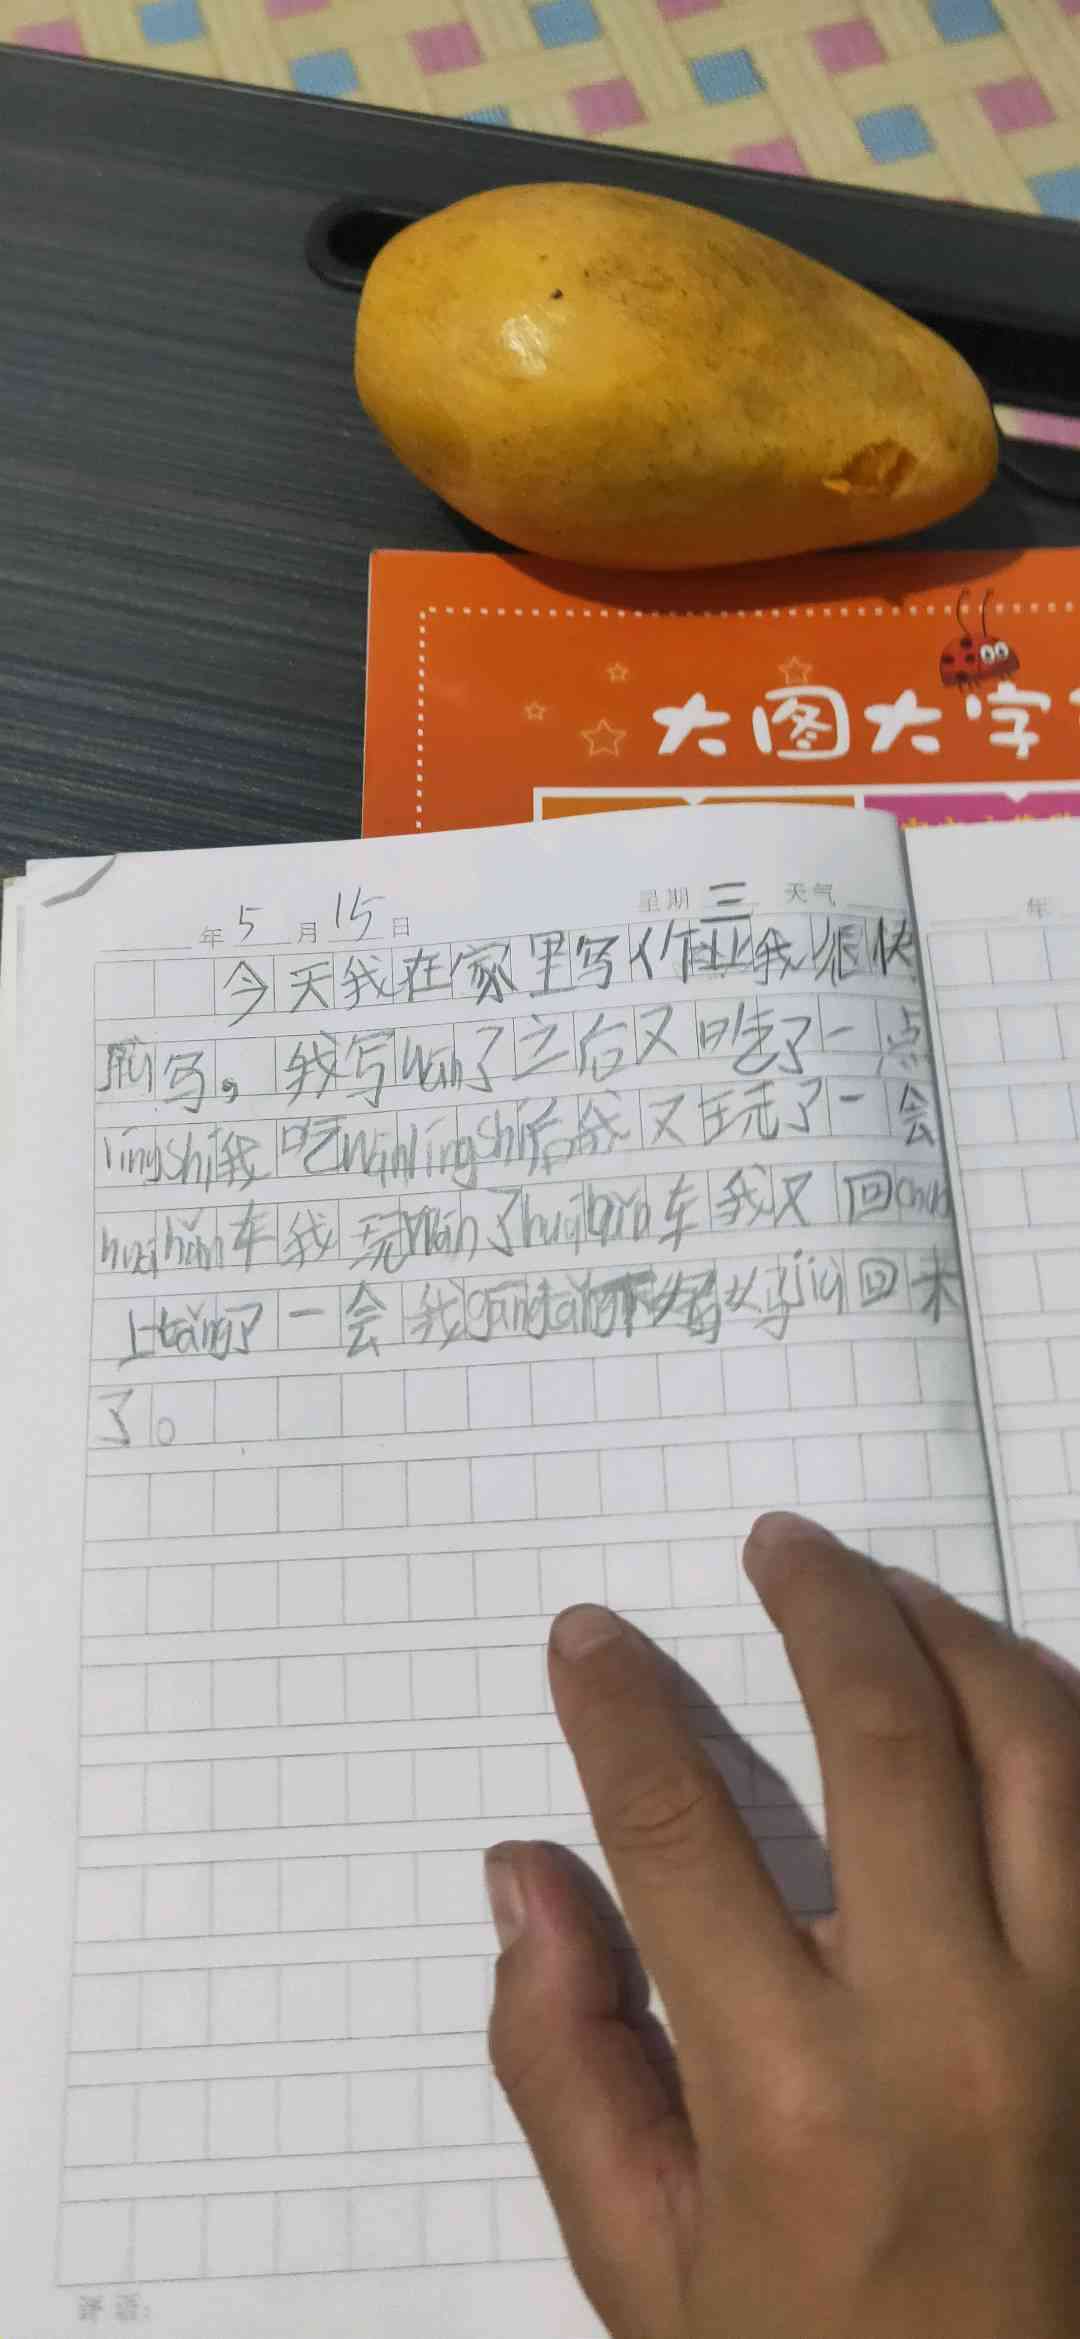 大图大字
年 5 月 15 日 星期 三 天气
年
今天我在家里写作业我很快
就写。我写wán了之后又吃了一点
língshí我吃wánlíngshí后我又玩了一会
huábǎn车我玩wán了huábǎn车我又回chuáng
上tǎng了一会我gāngtǎng下妈妈jiù回来
了。